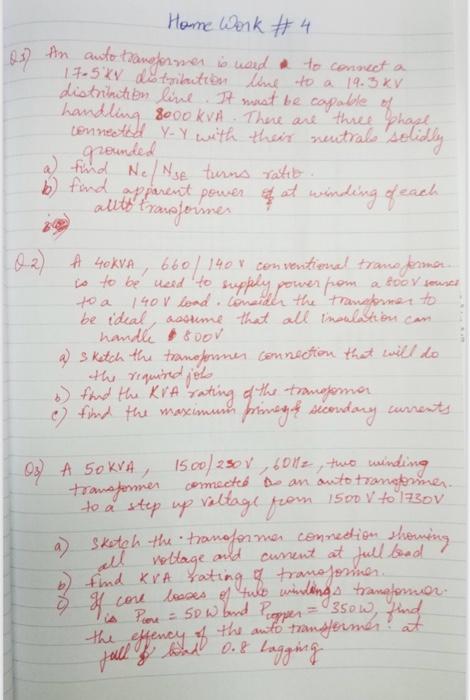 Home Work # 4
Q1) An autotransformer is used to connect a
17.5 KV distribution line to a 19.3 KV
distribution line. It must be capable of
handling 8000 KVA. There are three phase
connected Y-Y with their neutrals solidly
grounded
a) find Nc/NSE turns ratio.
b) find apparent power at winding of each
auto transformer
Q.2) A 40KVA, 660/140 V conventional transformer
is to be used to supply power from a 800V source
to a 140V load. Consider the transformer to
be ideal, assume that all insulation can
handle 800V
a) Sketch the transformer connection that will do
the required job
b) find the KVA rating of the transformer
c) find the maximum primary & secondary currents
Q3) A 50 KVA, 1500/230V, 60Hz, two winding
transformer connected as an autotransformer.
to a step up voltage from 1500 V to 1730V
a) Sketch the transformer connection showing
all voltage and current at full load
b) find KVA rating of transformer.
c) If core losses of two windings transformer
is Pcore = 50 W and Pcopper = 350W, find
the effency of the auto transformer at
full load 0.8 lagging